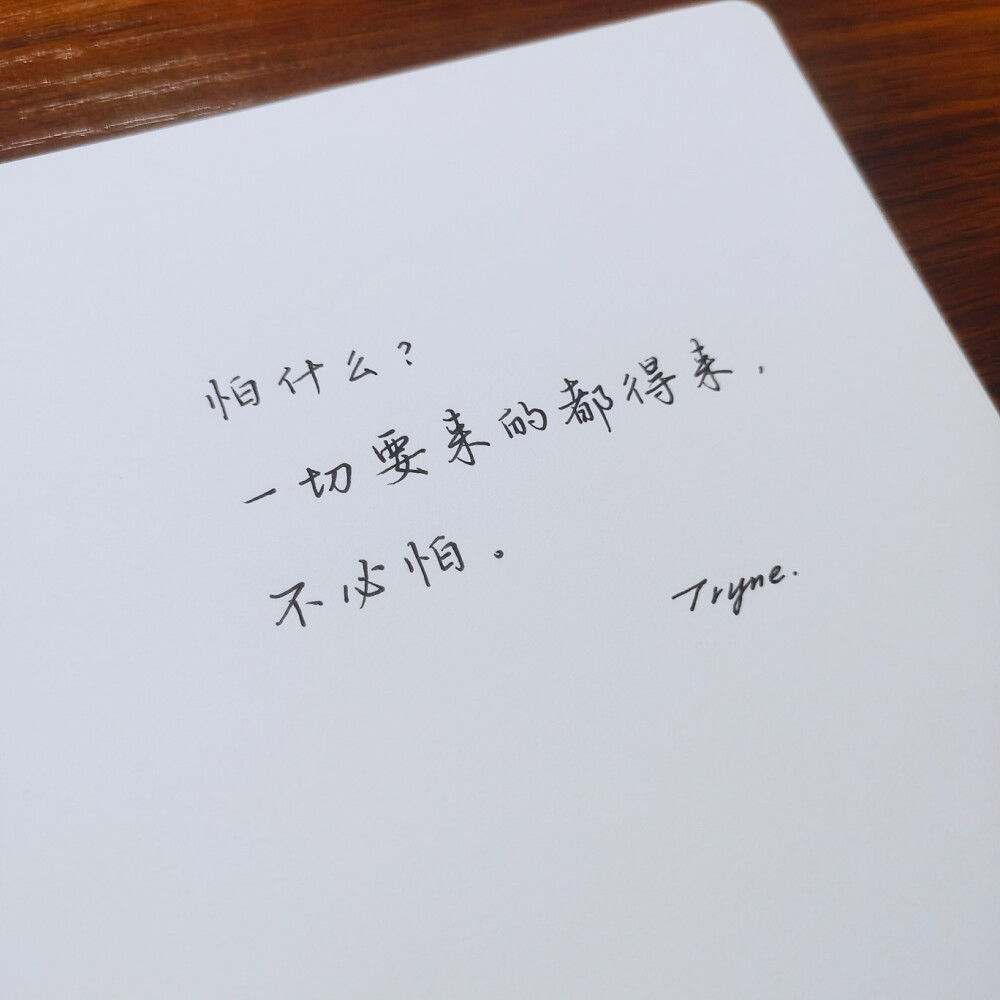 怕什么？
一切要来的都得来，
不必怕。
Tryne.